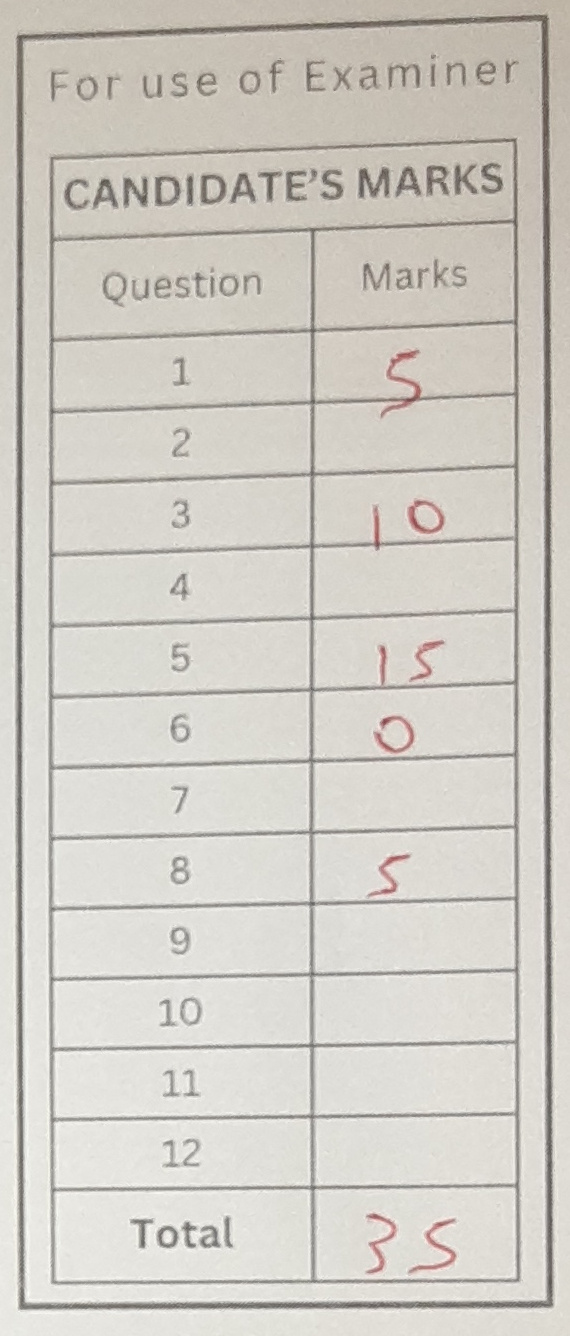 For use of Examiner
CANDIDATE'S MARKS
Question Marks
1 5
2
3 10
4
5 15
6 0
7
8 5
9
10
11
12
Total 35